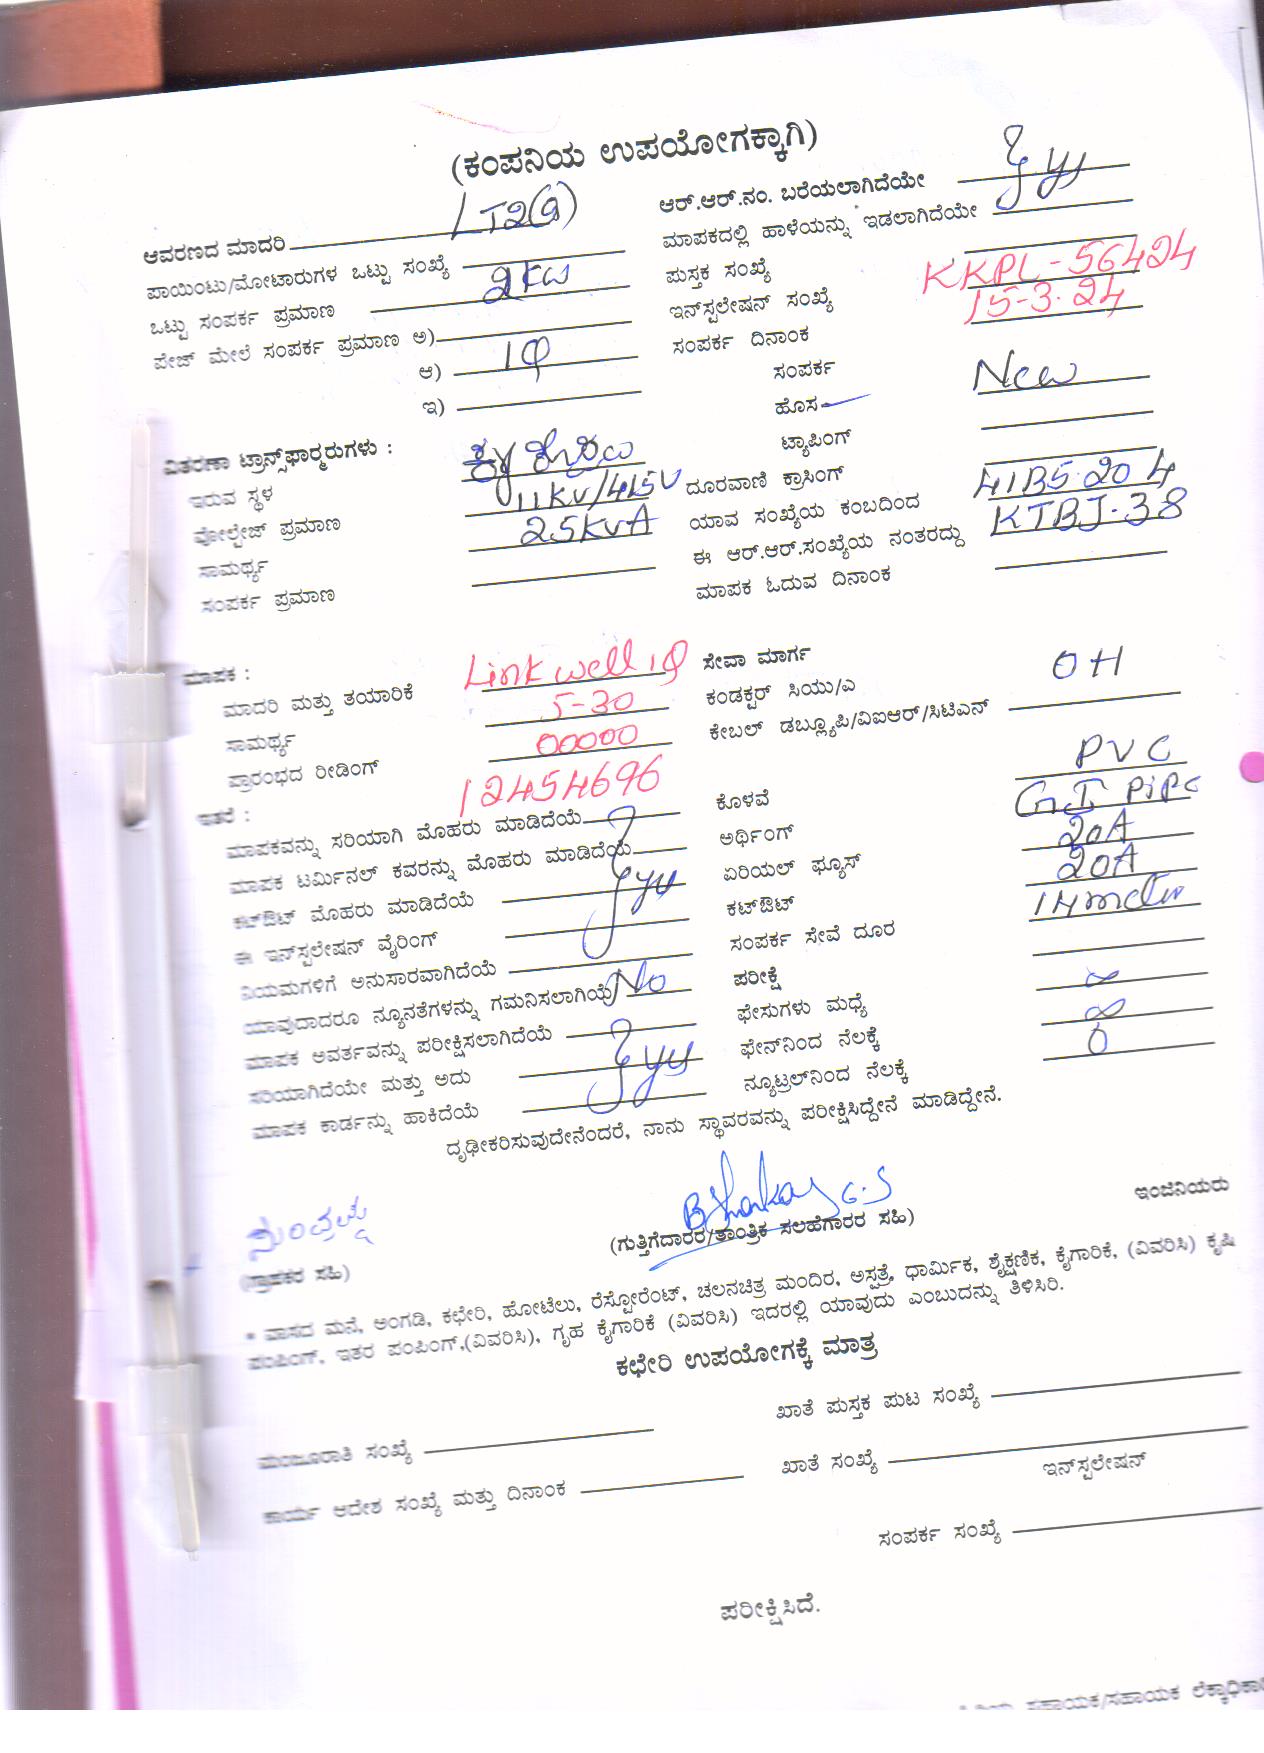 (ಕಂಪನಿಯ ಉಪಯೋಗಕ್ಕಾಗಿ)
ಆವರಣದ ಮಾದರಿ LT2(a)
ಪಾಯಿಂಟು/ಮೋಟಾರುಗಳ ಒಟ್ಟು ಸಂಖ್ಯೆ
ಒಟ್ಟು ಸಂಪರ್ಕ ಪ್ರಮಾಣ 2kw
ಪೇಜ್ ಮೇಲೆ ಸಂಪರ್ಕ ಪ್ರಮಾಣ ಅ)
ಆ) 1φ
ಇ)
ಆರ್.ಆರ್.ನಂ. ಬರೆಯಲಾಗಿದೆಯೇ
ಮಾಪಕದಲ್ಲಿ ಹಾಳೆಯನ್ನು ಇಡಲಾಗಿದೆಯೇ
ಪುಸ್ತಕ ಸಂಖ್ಯೆ
ಇನ್‌ಸ್ಟಲೇಷನ್ ಸಂಖ್ಯೆ KKPL-56424
ಸಂಪರ್ಕ ದಿನಾಂಕ 15-3-24
ಸಂಪರ್ಕ
ಹೊಸ New
ಟ್ಯಾಪಿಂಗ್
ವಿತರಣಾ ಟ್ರಾನ್ಸ್‌ಫಾರ್‍ಮರುಗಳು :
ಇರುವ ಸ್ಥಳ
ವೋಲ್ಟೇಜ್ ಪ್ರಮಾಣ 11KV/415V
ಸಾಮರ್ಥ್ಯ 25KVA
ಸಂಪರ್ಕ ಪ್ರಮಾಣ
ದೂರವಾಣಿ ಕ್ರಾಸಿಂಗ್
ಯಾವ ಸಂಖ್ಯೆಯ ಕಂಬದಿಂದ
ಈ ಆರ್.ಆರ್.ಸಂಖ್ಯೆಯ ನಂತರದ್ದು KTBJ-38
ಮಾಪಕ ಓದುವ ದಿನಾಂಕ
ಮಾಪಕ :
ಮಾದರಿ ಮತ್ತು ತಯಾರಿಕೆ Linkwell 1φ
ಸಾಮರ್ಥ್ಯ 5-30
ಪ್ರಾರಂಭದ ರೀಡಿಂಗ್ 00000
12454696
ಇತರೆ :
ಮಾಪಕವನ್ನು ಸರಿಯಾಗಿ ಮೊಹರು ಮಾಡಿದೆಯೆ
ಮಾಪಕ ಟರ್ಮಿನಲ್ ಕವರನ್ನು ಮೊಹರು ಮಾಡಿದೆಯೆ
ಕಟ್‌ಔಟ್ ಮೊಹರು ಮಾಡಿದೆಯೆ
ಈ ಇನ್‌ಸ್ಟಲೇಷನ್ ವೈರಿಂಗ್
ನಿಯಮಗಳಿಗೆ ಅನುಸಾರವಾಗಿದೆಯೆ
ಯಾವುದಾದರೂ ನ್ಯೂನತೆಗಳನ್ನು ಗಮನಿಸಲಾಗಿಯೆ No
ಮಾಪಕ ಅವರ್ತವನ್ನು ಪರೀಕ್ಷಿಸಲಾಗಿದೆಯೆ
ಸರಿಯಾಗಿದೆಯೇ ಮತ್ತು ಅದು
ಮಾಪಕ ಕಾರ್ಡನ್ನು ಹಾಕಿದೆಯೆ
ಸೇವಾ ಮಾರ್ಗ
ಕಂಡಕ್ಟರ್ ಸಿಯು/ಎ OH
ಕೇಬಲ್ ಡಬ್ಲ್ಯೂಪಿ/ವಿಐಆರ್/ಸಿಟಿಎನ್
ಕೊಳವೆ PVC
ಅರ್ಥಿಂಗ್ G.I Pipe
ಏರಿಯಲ್ ಫ್ಯೂಸ್ 20A
ಕಟ್‌ಔಟ್ 20A
ಸಂಪರ್ಕ ಸೇವೆ ದೂರ
ಪರೀಕ್ಷೆ
ಫೇಸುಗಳು ಮಧ್ಯೆ
ಫೇನ್‌ನಿಂದ ನೆಲಕ್ಕೆ
ನ್ಯೂಟ್ರಲ್‌ನಿಂದ ನೆಲಕ್ಕೆ
ದೃಢೀಕರಿಸುವುದೇನೆಂದರೆ, ನಾನು ಸ್ಥಾವರವನ್ನು ಪರೀಕ್ಷಿಸಿದ್ದೇನೆ ಮಾಡಿದ್ದೇನೆ.
ಇಂಜಿನಿಯರು
(ಗುತ್ತಿಗೆದಾರರ/ತಾಂತ್ರಿಕ ಸಲಹೆಗಾರರ ಸಹಿ)
(ಗ್ರಾಹಕರ ಸಹಿ)
* ವಾಸದ ಮನೆ, ಅಂಗಡಿ, ಕಛೇರಿ, ಹೋಟೆಲು, ರೆಸ್ಟೋರೆಂಟ್, ಚಲನಚಿತ್ರ ಮಂದಿರ, ಅಸ್ಪತ್ರೆ, ಧಾರ್ಮಿಕ, ಶೈಕ್ಷಣಿಕ, ಕೈಗಾರಿಕೆ, (ವಿವರಿಸಿ) ಕೃಷಿ
ಪಂಪಿಂಗ್, ಇತರ ಪಂಪಿಂಗ್,(ವಿವರಿಸಿ), ಗೃಹ ಕೈಗಾರಿಕೆ (ವಿವರಿಸಿ) ಇದರಲ್ಲಿ ಯಾವುದು ಎಂಬುದನ್ನು ತಿಳಿಸಿರಿ.
ಕಛೇರಿ ಉಪಯೋಗಕ್ಕೆ ಮಾತ್ರ
ಖಾತೆ ಪುಸ್ತಕ ಪುಟ ಸಂಖ್ಯೆ
ಮಂಜೂರಾತಿ ಸಂಖ್ಯೆ
ಖಾತೆ ಸಂಖ್ಯೆ
ಇನ್‌ಸ್ಟಲೇಷನ್
ಕಾರ್ಯ ಆದೇಶ ಸಂಖ್ಯೆ ಮತ್ತು ದಿನಾಂಕ
ಸಂಪರ್ಕ ಸಂಖ್ಯೆ
ಪರೀಕ್ಷಿಸಿದೆ.
ಸಹಾಯಕ/ಸಹಾಯಕ